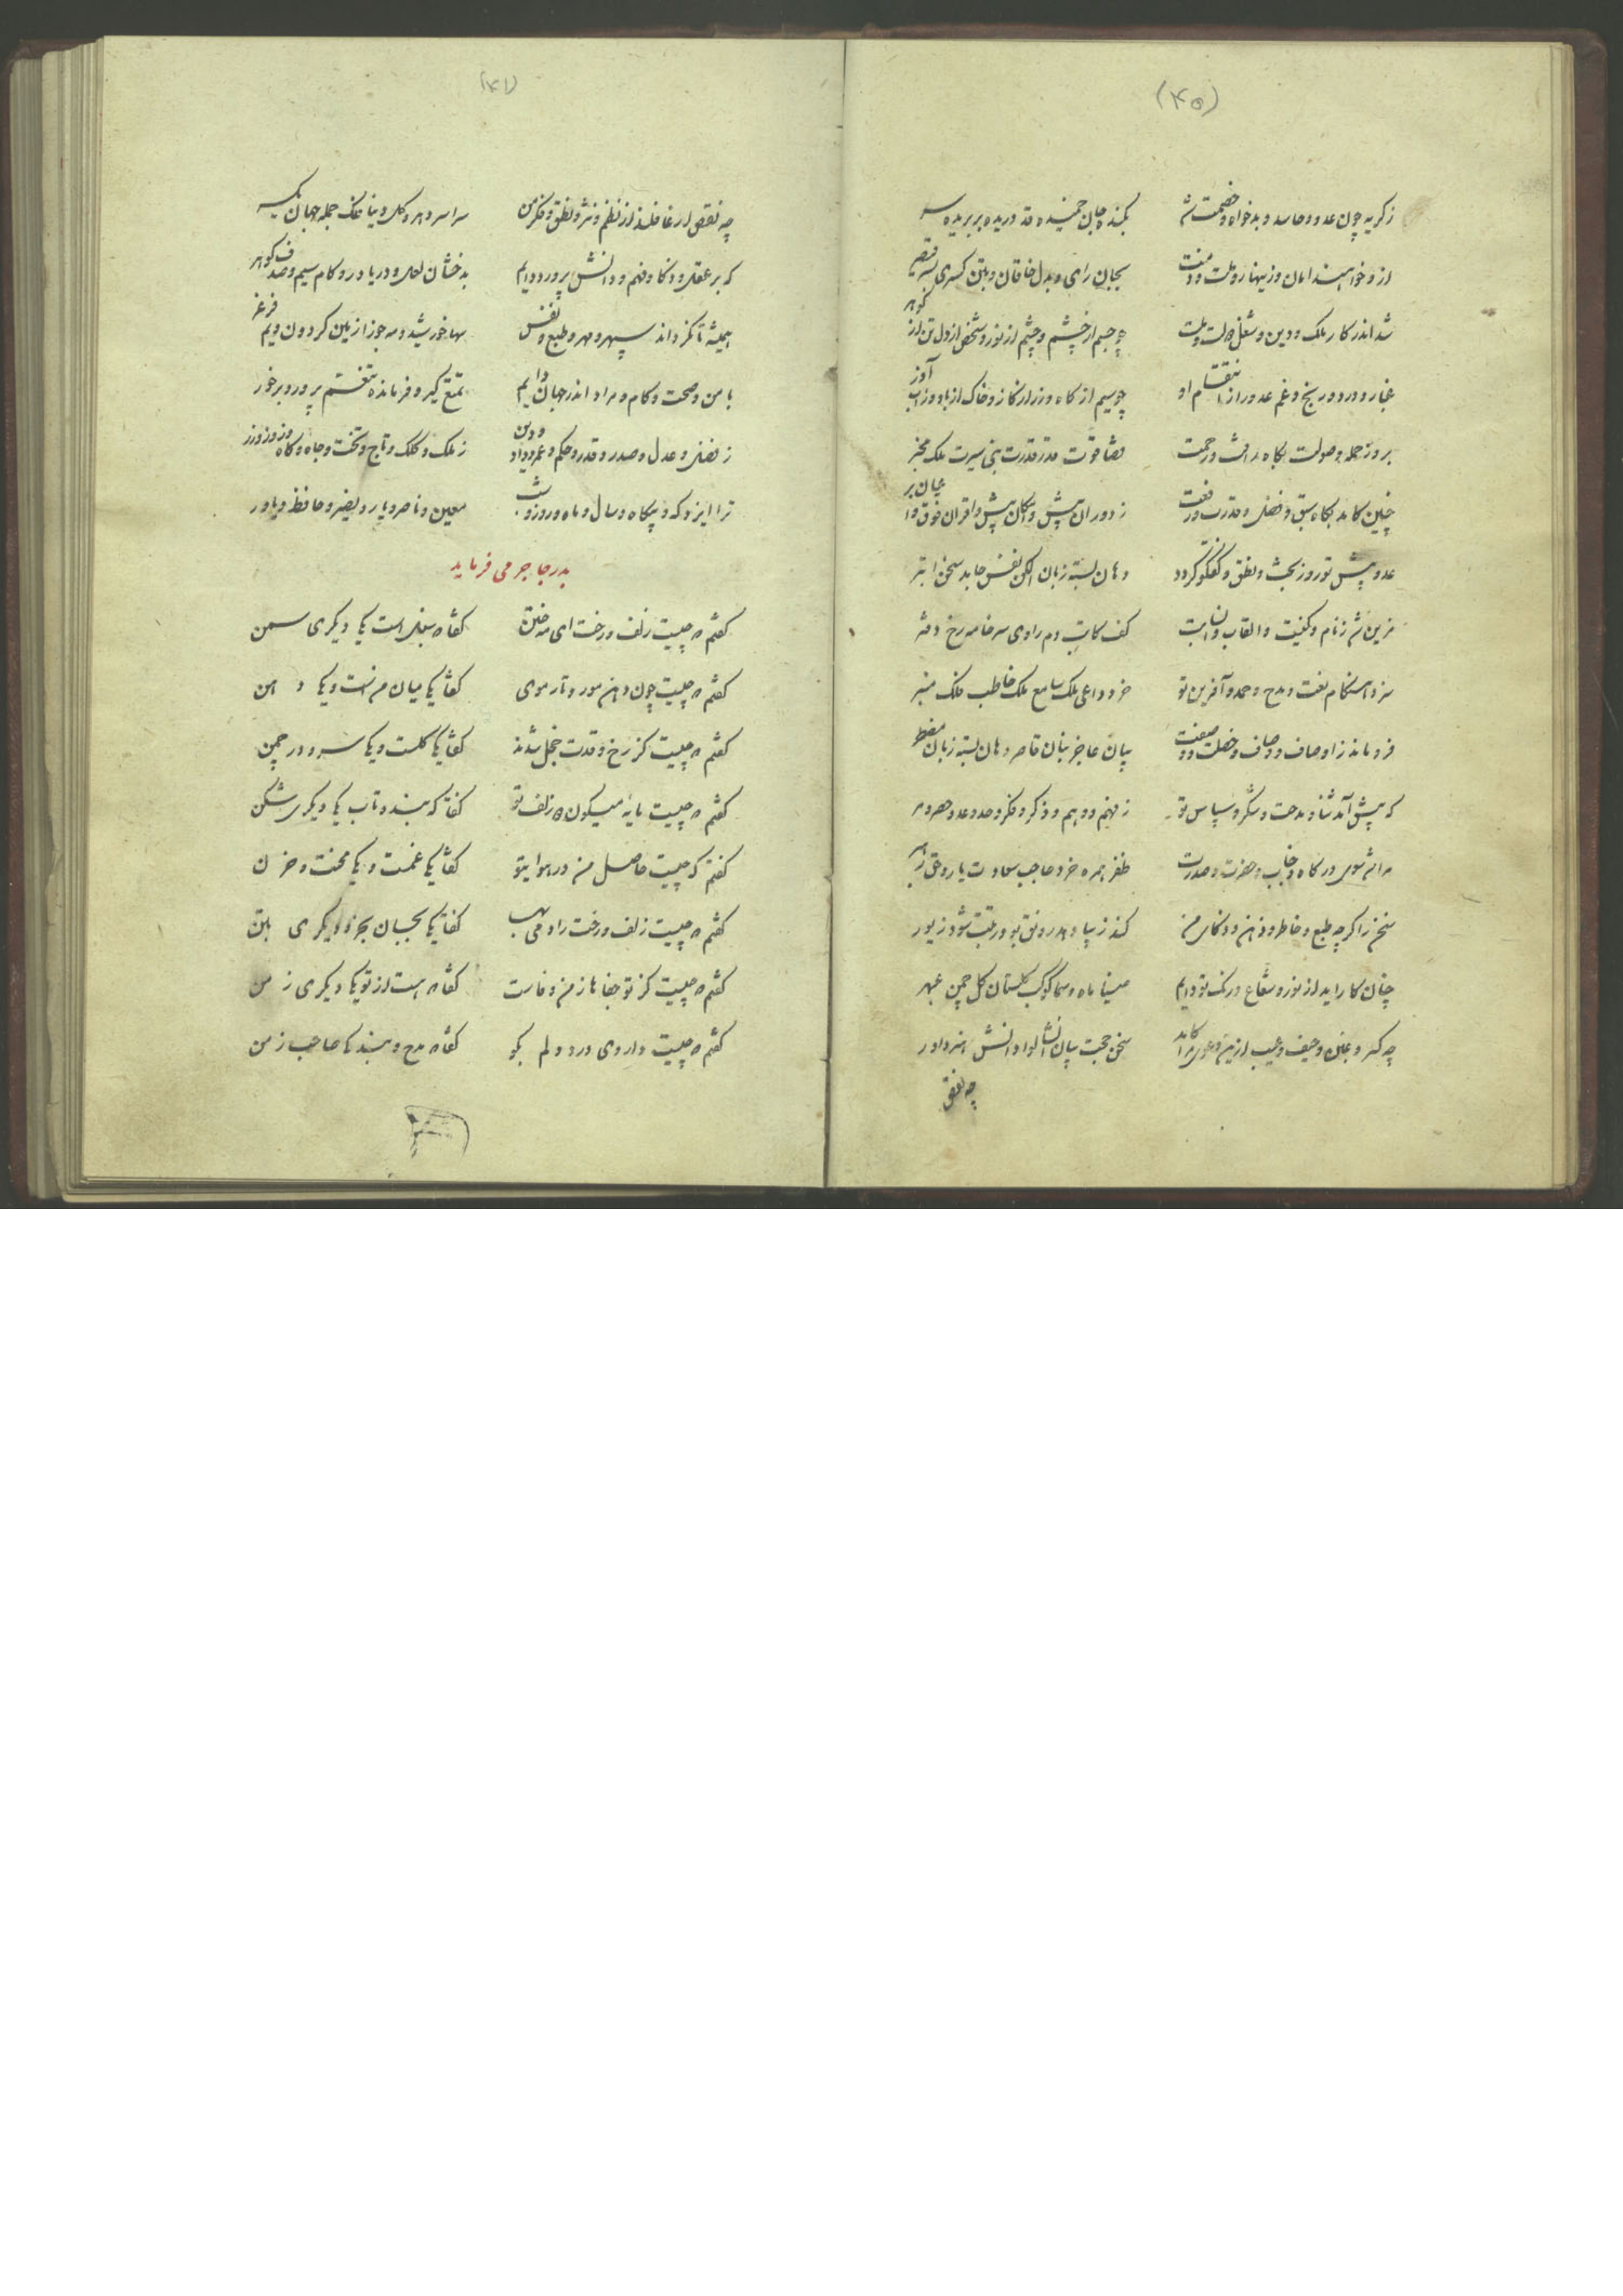 (۴۵)
ز کریه چون عدو و حاسد و بدخواه و خصمت شد بکنده جان خمیده قد دریده بر بریده سر
ازو خواهند امان و زینهار و ملت و منت بجان رای و بدل خاقان و بتن کسری بسر قیصر
شد اندر کار ملک و دین و شغل دولت و ملت چو جسم از چشم و چشم از نور و شخص از دل تن از گوهر
غبار و درد و رنج و غم عدو را ز انتقام او چو سیم از کاه و زر از کاز و خاک از باد و ز آب آذر
بروز حمله و صولت بگاه رافت و رحمت قضا قوت قدر قدرت نبی سیرت ملک مخبر
چنین کامد بگاه سبق و فضل و قدرت و رفعت ز دوران پیش و ز امکان بیش و ز اقران فوق و
عدو پیش تو روز بحث و نطق و گفتگو گردد دهان بسته زبان الکن نفس جامد سخن ابتر
مزین شد ز نام و کنیت و القاب و انسابت کف کاتب دم راوی سر خامه رخ دفتر
سزد هنگام نعت و مدح و حمد و آفرین تو خرد داعی ملک سامع ملک خاطب فلک منبر
فرو ماند ز اوصاف و خصلت و صفت بیان عاجز بنان قاصر دهان بسته زبان مضطر
که پیش آمد ثنا و مدحت و شکر و سپاس تو ز فهم و وهم و ذکر و فکر و حد و عد و حصر و مر
مرا شد سوی درگاه و جناب و حضرت و صدرت ظفر همره خرد صاحب سعادت یار و حق رهبر
سخن را گر چه طبع و خاطر و ذهن و ذکای من کند زیبا دهد رونق بود رتبت شود زیور
چنان کاراید از نور و شعاع و رنگ تو دایم ضیا ماه و سما کوکب گلستان گل چمن عبهر
چه کسر و غبن و حیف و عیب ازین دعوی مرا کامد سخن حجت بیان انشا لوا دانش هنر داور
چه نقص
(۴۱)
چه نقص ار غافلند از نظم و نثر و نطق و فکر من سراسر دهر و کل دنیا فلک جمله جهان یکسر
که بر عقل و ذکا و فهم و دانش پرورد دایم بدخشان لعل و دریا در و کام سیم و صدف گوهر
همیشه تا نگرداند سپهر و مهر و طبع و نفس سها خورشید و مه جوزا زمین گردون و یم فرغر
بامن و صحت و کام و مراد اندر جهان دایم تمتع گیر و فرمان ده تنعم پرور و برخور
ز فضل و عدل و صدر و قدر و حکم و عمر و داد و دین ز ملک و کلک و تاج و تخت و جاه و گاه و زور و زر
ترا ایزد که و بیگاه و سال و ماه و روز و شب معین و ناصر و یار و نصیر و حافظ و یاور
بدر جاجرمی فرماید
گفتم دو چیست زلف و رخت ای مه ختن گفتا دو سنبل است یکی دیگری سمن
گفتم دو چیست چون دهن مور و تار موی گفتا یکی میان منست و یکی دهن
گفتم دو چیست کز رخ و قدت خجل شدند گفتا یکی گلست و یکی سرو در چمن
گفتم دو چیست مایه میگون دو زلف تو گفتا که بند و تاب یکی دیگری شکن
گفتم که چیست حاصل من در هوای تو گفتا یکی غمست و یکی محنت و حزن
گفتم دو چیست زلف و رخت را دمی بهب گفتا یکی بجان بخر و دیگری بتن
گفتم دو چیست کز تو جفا ها ز من وفاست گفتا دو هست از تو یکی دیگری ز من
گفتم دو چیست داروی درد دلم بگو گفتا دو مدح و بند صاحب زمن